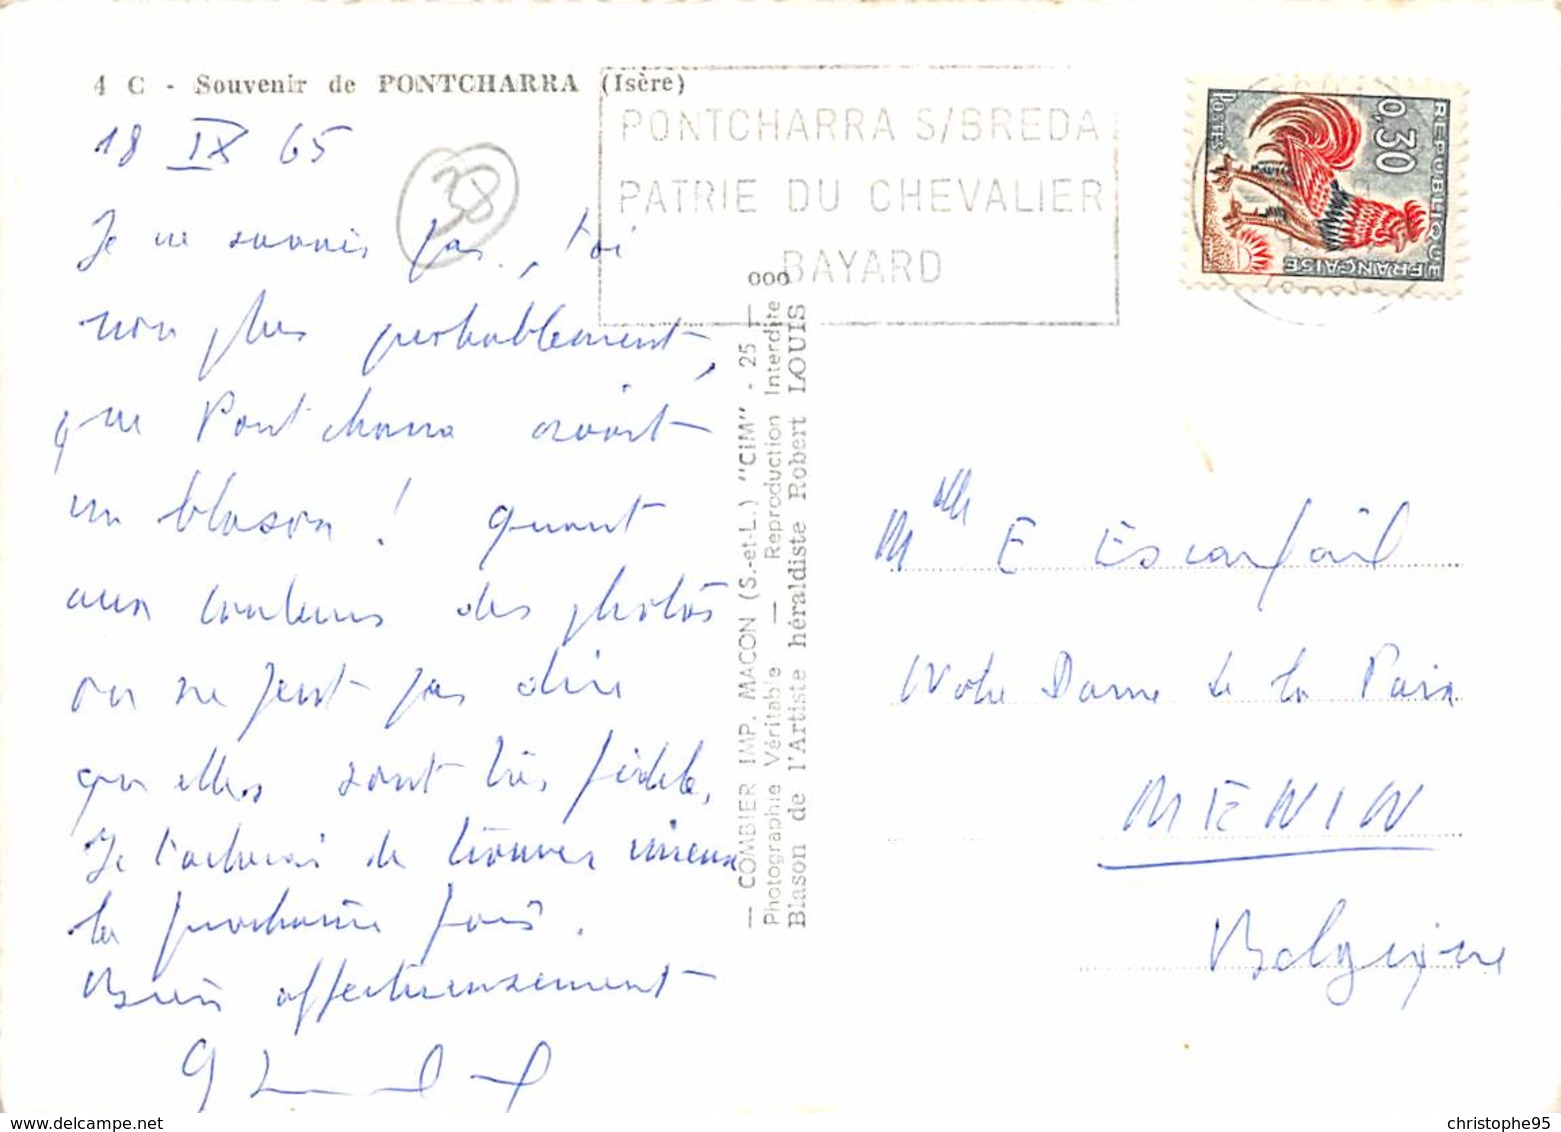 4 C - Souvenir de PONTCHARRA (Isère)
18 IX 65
38
Je ne savais pas, toi
non plus probablement,
que Pontcharra avait
un blason ! quant
aux couleurs des photos
on ne peut pas dire
qu'elles sont très fidèles,
Je tacherai de trouver mieux
la prochaine fois.
Bien affectueusement
PONTCHARRA S/BREDA
PATRIE DU CHEVALIER
BAYARD
REPUBLIQUE FRANÇAISE
0,30
POSTES
— COMBIER IMP. MACON (S.-et-L.) "CIM" - 25 —
Photographie Véritable — Reproduction Interdite
Blason de l'Artiste héraldiste Robert LOUIS
ooo
Mlle E Escarfail
Notre Dame de la Paix
MENIN
Belgique
christophe95